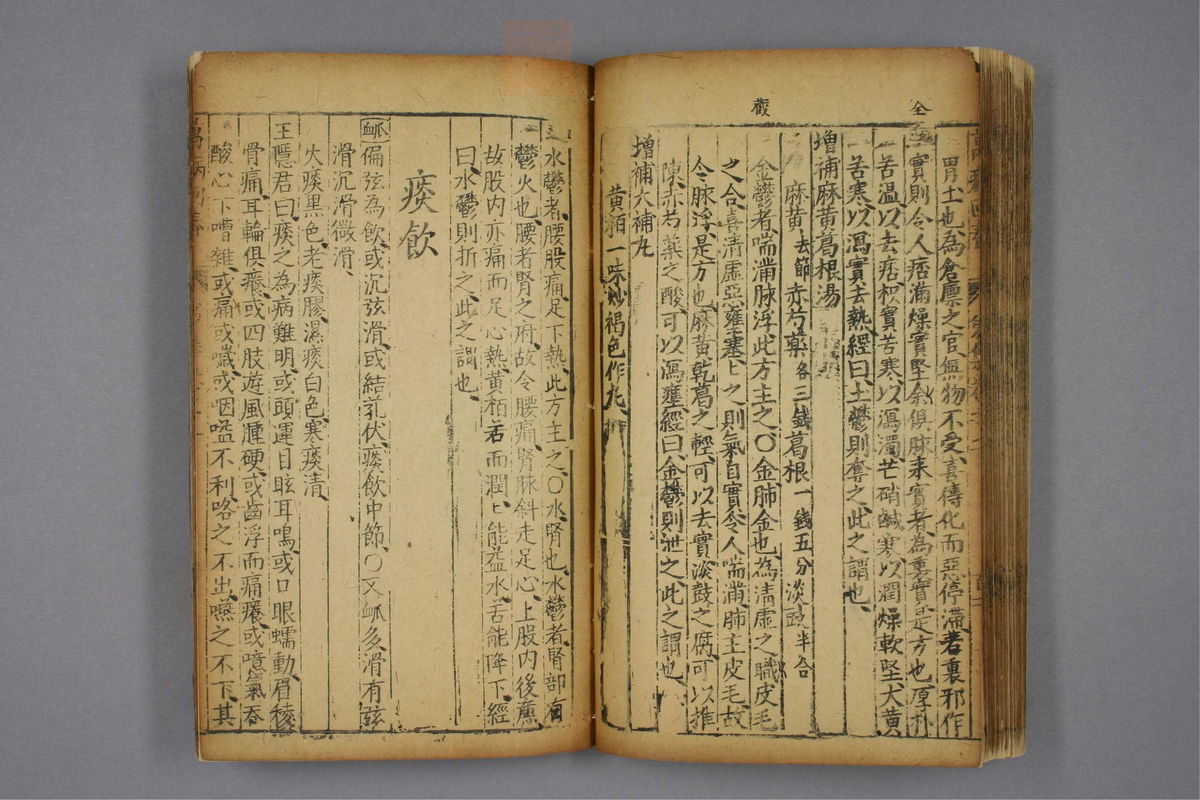 全
觀
胃土也為倉廩之官無物不受喜傳化而惡停滯若裏邪作
實則令人痞滿燥實堅全俱脉來實者為裏實是方也厚朴
苦温以去痞枳實苦寒以瀉濁芒硝鹹寒以潤燥軟堅大黃
苦寒以瀉實去熱經曰土鬱則奪之此之謂也
增補麻黃葛根湯
麻黃去節赤芍藥各三錢葛根一錢五分淡豉半合
金鬱者喘滿脉浮此方主之〇金肺金也為清虛之職皮毛
之合喜清虛惡壅塞〻之則氣自實令人喘滿肺主皮毛故
令脉浮是方也麻黃乾葛之輕可以去實淡豉之腐可以推
陳赤芍藥之酸可以瀉壅經曰金鬱則泄之此之謂也
增補大補丸
黃栢一味炒褐色作丸
水鬱者腰股痛足下熱此方主之〇水腎也水鬱者腎部有
鬱火也腰者腎之府故令腰痛腎脉斜走足心上股内後廉
故股内亦痛而足心熱黃栢苦而潤〻能益水苦能降下經
曰水鬱則折之此之謂也
痰飲
䘑偏弦為飲或沉弦滑或結芤伏痰飲中節〇又䘑多滑有弦
滑沉滑微滑
火痰黑色老痰膠濕痰白色寒痰清
王隱君曰痰之為病難明或頭運目眩耳鳴或口眼蠕動眉稜
骨痛耳輪俱癢或四肢遊風腫硬或齒浮而痛癢或噫氣吞
酸心下嘈雜或痛或噦或咽嗌不利咯之不出嚥之不下其